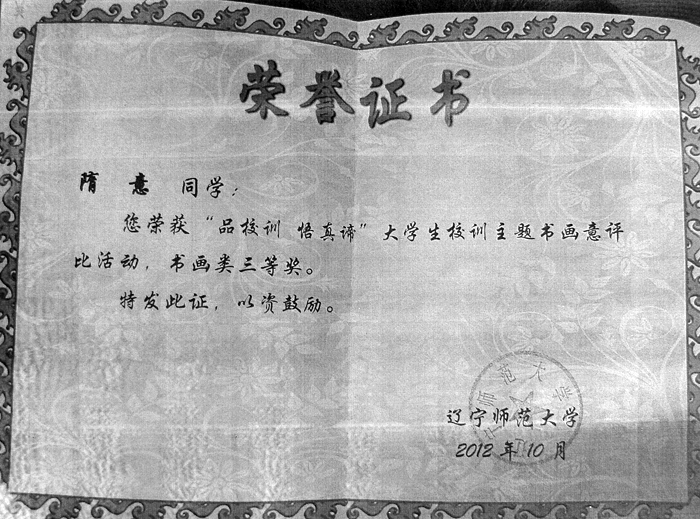 荣誉证书
隋 意 同学：
您荣获“品校训 悟真谛”大学生校训主题书画意评
比活动，书画类三等奖。
特发此证，以资鼓励。
辽宁师范大学
2012 年 10 月